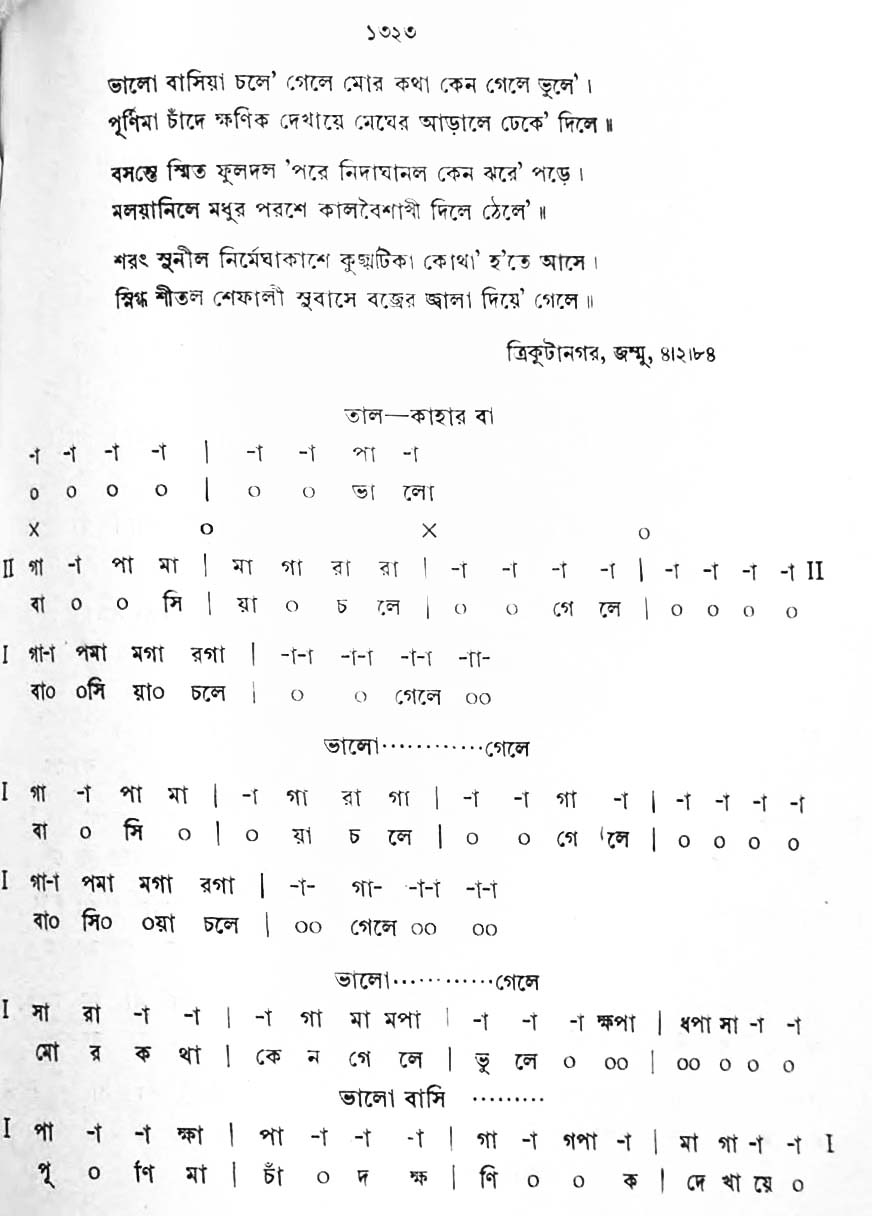 ১৩২৩
ভালো বাসিয়া চলে' গেলে মোর কথা কেন গেলে ভুলে' ।
পূর্ণিমা চাঁদে ক্ষণিক দেখায়ে মেঘের আড়ালে ঢেকে' দিলে ॥
বসন্তে স্মিত ফুলদল 'পরে নিদাঘানল কেন ঝরে' পড়ে ।
মলয়ানিলে মধুর পরশে কালবৈশাখী দিলে ঠেলে' ॥
শরৎ সুনীল নির্মেঘাকাশে কুজ্ঝটিকা কোথা' হ'তে আসে ।
স্নিগ্ধ শীতল শেফালী সুবাসে বজ্রের জ্বালা দিয়ে' গেলে ॥
ত্রিকূটানগর, জম্মু, ৪।২।৮৪
তাল—কাহার বা
-া -া -া -া | -া -া পা -া
০ ০ ০ ০ | ০ ০ ভা লো
× ০ × ০
II গা -া পা মা | মা গা রা রা | -া -া -া -া | -া -া -া -া II
বা ০ ০ সি | য়া ০ চ লে | ০ ০ গে লে | ০ ০ ০ ০
I গা-া পমা মগা রগা | -া-া -া-া -া-া -াা-
বা০ ০সি য়া০ চলে | ০ ০ গেলে ০০
ভালো············গেলে
I গা -া পা মা | -া গা রা গা | -া -া গা -া | -া -া -া -া
বা ০ সি ০ | ০ য়া চ লে | ০ ০ গে লে | ০ ০ ০ ০
I গা-া পমা মগা রগা | -া- গা- -া-া -া-া
বা০ সি০ ০য়া চলে | ০০ গেলে ০০ ০০
ভালো············গেলে
I সা রা -া -া | -া গা মা মপা | -া -া -া ক্ষপা | ধপা মা -া -া
মো র ক থা | কে ন গে লে | ভু লে ০ ০০ | ০০ ০ ০ ০
ভালো বাসি ·········
I পা -া -া ক্ষা | পা -া -া -া | গা -া গপা -া | মা গা -া -া I
পূ ০ র্ণি মা | চাঁ ০ দ ক্ষ | ণি ০ ০ ক | দে খা য়ে ০